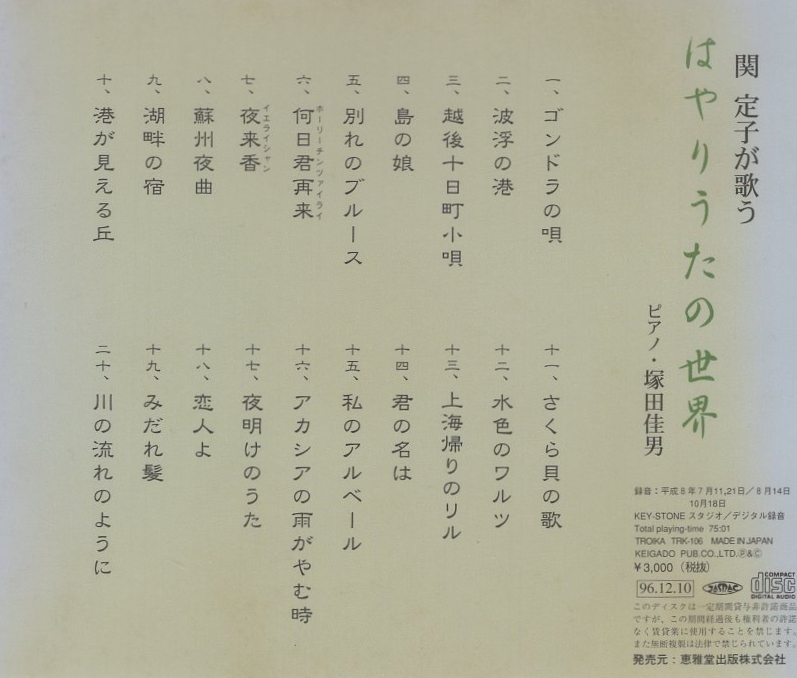 関 定子が歌う
はやりうたの世界
ピアノ・塚田佳男
一、ゴンドラの唄
二、波浮の港
三、越後十日町小唄
四、島の娘
五、別れのブルース
六、何日君再来
ホーリーチンツァイライ
七、夜来香
イエライシャン
八、蘇州夜曲
九、湖畔の宿
十、港が見える丘
十一、さくら貝の歌
十二、水色のワルツ
十三、上海帰りのリル
十四、君の名は
十五、私のアルベール
十六、アカシアの雨がやむ時
十七、夜明けのうた
十八、恋人よ
十九、みだれ髪
二十、川の流れのように
録音:平成8年7月11,21日/8月14日
10月18日
KEY-STONE スタジオ/デジタル録音
Total playing-time 75:01
TROIKA TRK-106 MADE IN JAPAN
KEIGADO PUB.CO.,LTD.Ⓟ&Ⓒ
¥3,000(税抜)
96.12.10 JASRAC COMPACT disc DIGITAL AUDIO
このディスクは一定期間貸与非許諾商品
ですが、この期間経過後も権利者の許諾
なく賃貸業に使用することを禁じます。
また無断複製は法律で禁じられています。
発売元:恵雅堂出版株式会社